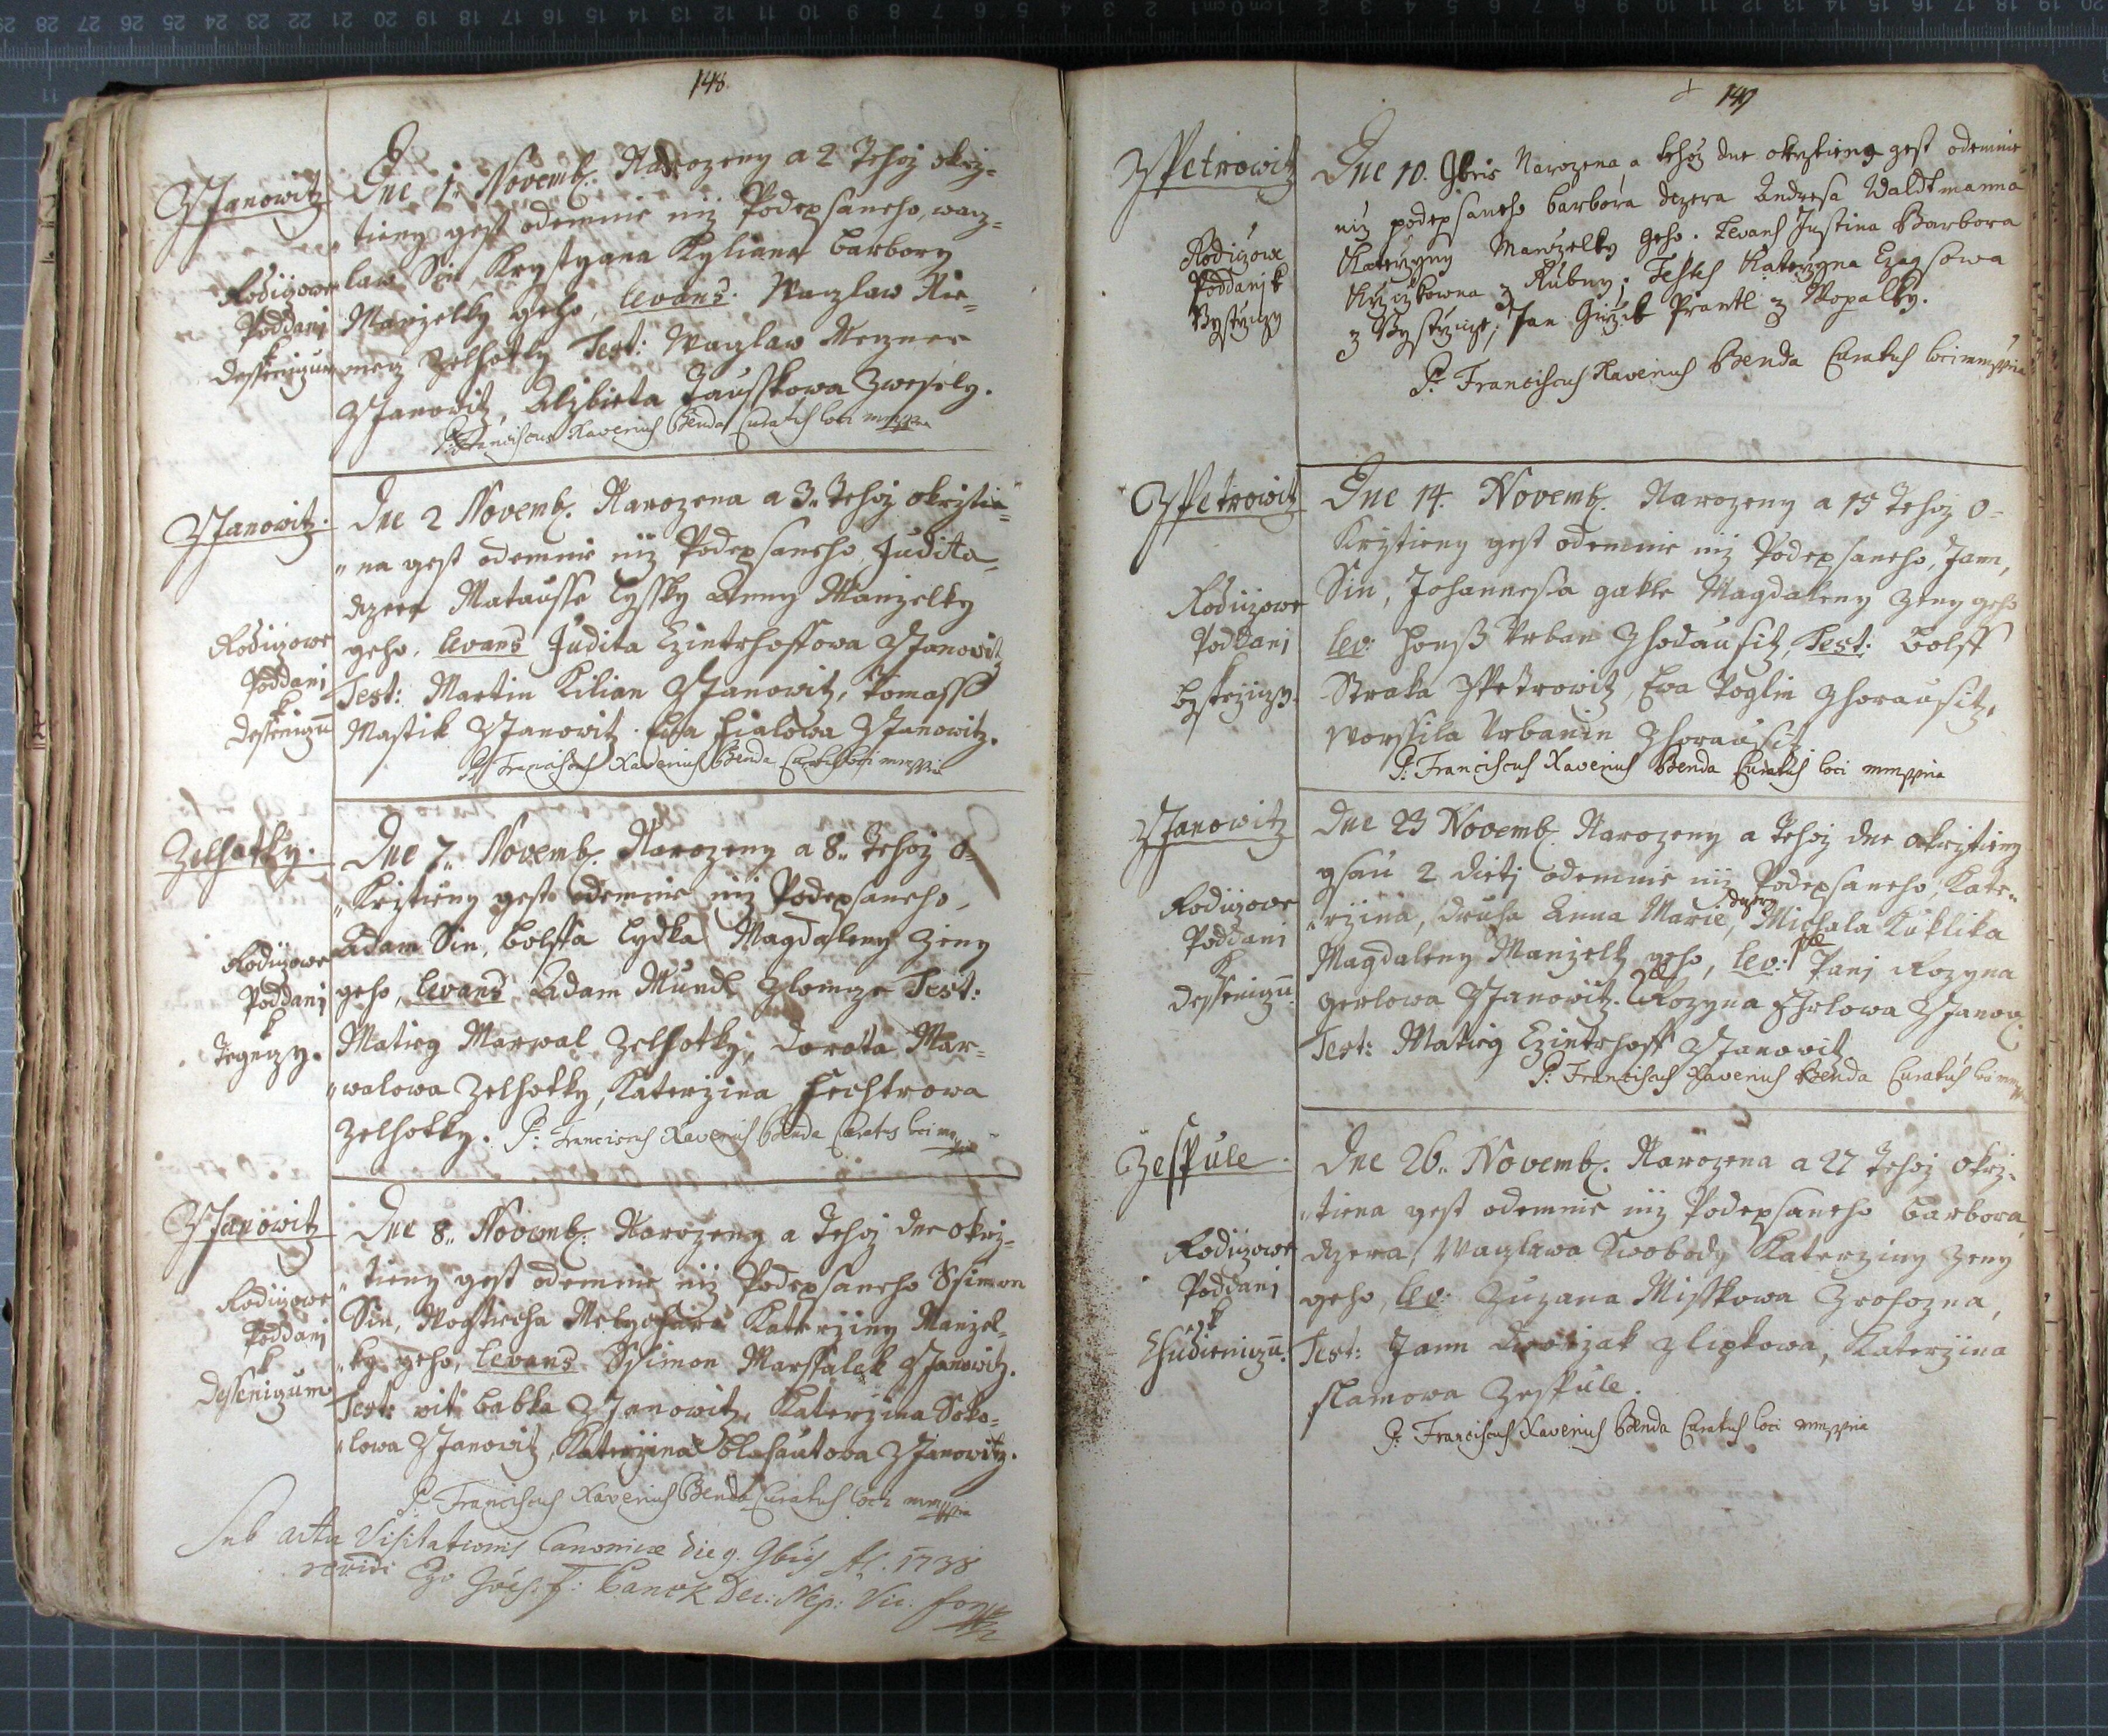 148.
ZJanowitz
Rodiczowe
Poddani
k
Desseniczum
Dne 1. Novemb: Narozeny a 2 Tehoz okrz=
tieny gest odemnie niz Podepsaneho, wacz=
law Sin, Krystyana Kyliana barbory
Manzelky geho, levans. Waczlaw Nie=
mecz Zelhotky Test: Waczlaw Nerzner
ZJanowitz, Alzbieta Zausskowa Zwesely.
P: Franciscus Xaverius Benda Curatus loci mmppria
ZJanowitz.
Rodiczowe
Poddani
k
Desseniczu
Dne 2 Novemb. Narozena a 3. Tehoz okrztie=
na gest odemnie niz Podepsaneho, Judita
dczera Matausse Lyssky Anny Manzelky
geho. levans Judita Czinterhoffowa ZJanowitz
Test: Martin Kilian ZJanowitz, Tomass
Mastik ZJanowitz. Ewa Fialowa ZJanowitz.
P. Franciscus Xaverius Benda Curatus loci mmppria
Zelhotky.
Rodiczowe
Poddani
k
Tegnczy.
Dne 7. Novemb. Narozeny a 8. Tehoz o=
Krztieny gest odemnie niz Podepsaneho,
Adam Sin, bolffa Lydka Magdaleny Zeny
geho, levans Adam Mundl Zlomze Test:
Matieg Marwal Zelhotky, Dorota Mar=
walowa Zelhotky, Katerzina Fechtrowa
Zelhotky. P: Franciscus Xaverius Benda Curatus loci mmppria
ZJanowitz
Rodiczowe
Poddani
k
Desseniczum
Dne 8. Novemb: Narozeny a Tehoz dne okrz=
tieny gest odemnie niz Podepsaneho Ssimon
Sin, Wogtiecha Katerziny Manzel=
ky geho, levans Ssimon Marssalek ZJanowitz.
Test: wit babka ZJanowitz, Katerzina Soko=
lowa ZJanowitz, Katerzina blahautowa ZJanowitz.
P. Franciscus Xaverius Benda Curatus loci mmppria
Sub actu Visitationis Canonicae die 9. 9bris Ao. 1738
revidi Ego F: Canek Dec: Nep: Vic. for
149
ZPetrowitz
Rodiczowe
Poddani k
Bystrziczy
Dne 10. 9bris Narozena a tehoz dne okrztiena gest odemnie
niz podepsaneho barbora dczera Andresa Waldtmanna
Katerzyny Manzelky geho. Levans Justina Barbora
z Rubny; Testes Katerzyna
z Bystrzicze, Jan Prantl z Wopalky.
P: Franciscus Xaverius Benda Curatus loci mmppria
ZPetrowitz
Rodiczowe
Poddani
k
bystrziczy.
Dne 14. Novemb. Narozeny a 15 Tehoz o=
Krztieny gest odemnie niz Podepsaneho, Jann,
Sin, Johannessa gakle Magdaleny Zeny geho
lev: Honss Urban Zhodausitz, Test: bolff
Straka ZPetrowitz, Ewa Poglin Zhorausitz,
Worssila Urbanin Zhorausitz
P: Franciscus Xaverius Benda Curatus loci mmppria
ZJanowitz
Rodiczowe
Poddani
k
Desseniczu.
Dne 23 Novemb. Narozeny a Tehoz dne okrztieny
gsau 2 dietj odemnie niz Podepsaneho, Kate=
rzina, druha Anna Marie, dczery Michala Kuklika
Magdaleny Manzelky geho, lev: 1mae Panj Rozyna
Gerlowa ZJanowitz. 2dae Rozyna Ehrlowa ZJanow.
Test: Matieg Czinterhoff ZJanowitz
P: Franciscus Xaverius Benda Curatus loci mmppria
Zespule.
Rodiczowe
Poddani
k
Chudieniczu.
Dne 26. Novemb. Narozena a 27 Tehoz okrz=
tiena gest odemnie niz Podepsaneho barbora
dczera, Waczlawa Swobody Katerziny Zeny
geho, lev: Zuzana Misskowa Zrohozna,
Test: Jann Dworzak Zlipkowa, Katerzina
slamowa Zespule.
P: Franciscus Xaverius Benda Curatus loci mmppria